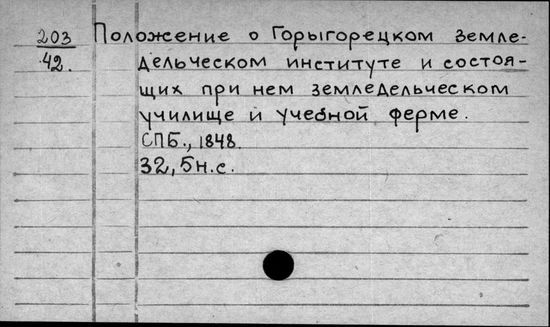 203 Положение о Горыгорецком земле-
42. дельческом институте и состоя-
щих при нем земледельческом
училище и учебной ферме.
СПБ., 1848.
32, 5 н.с.